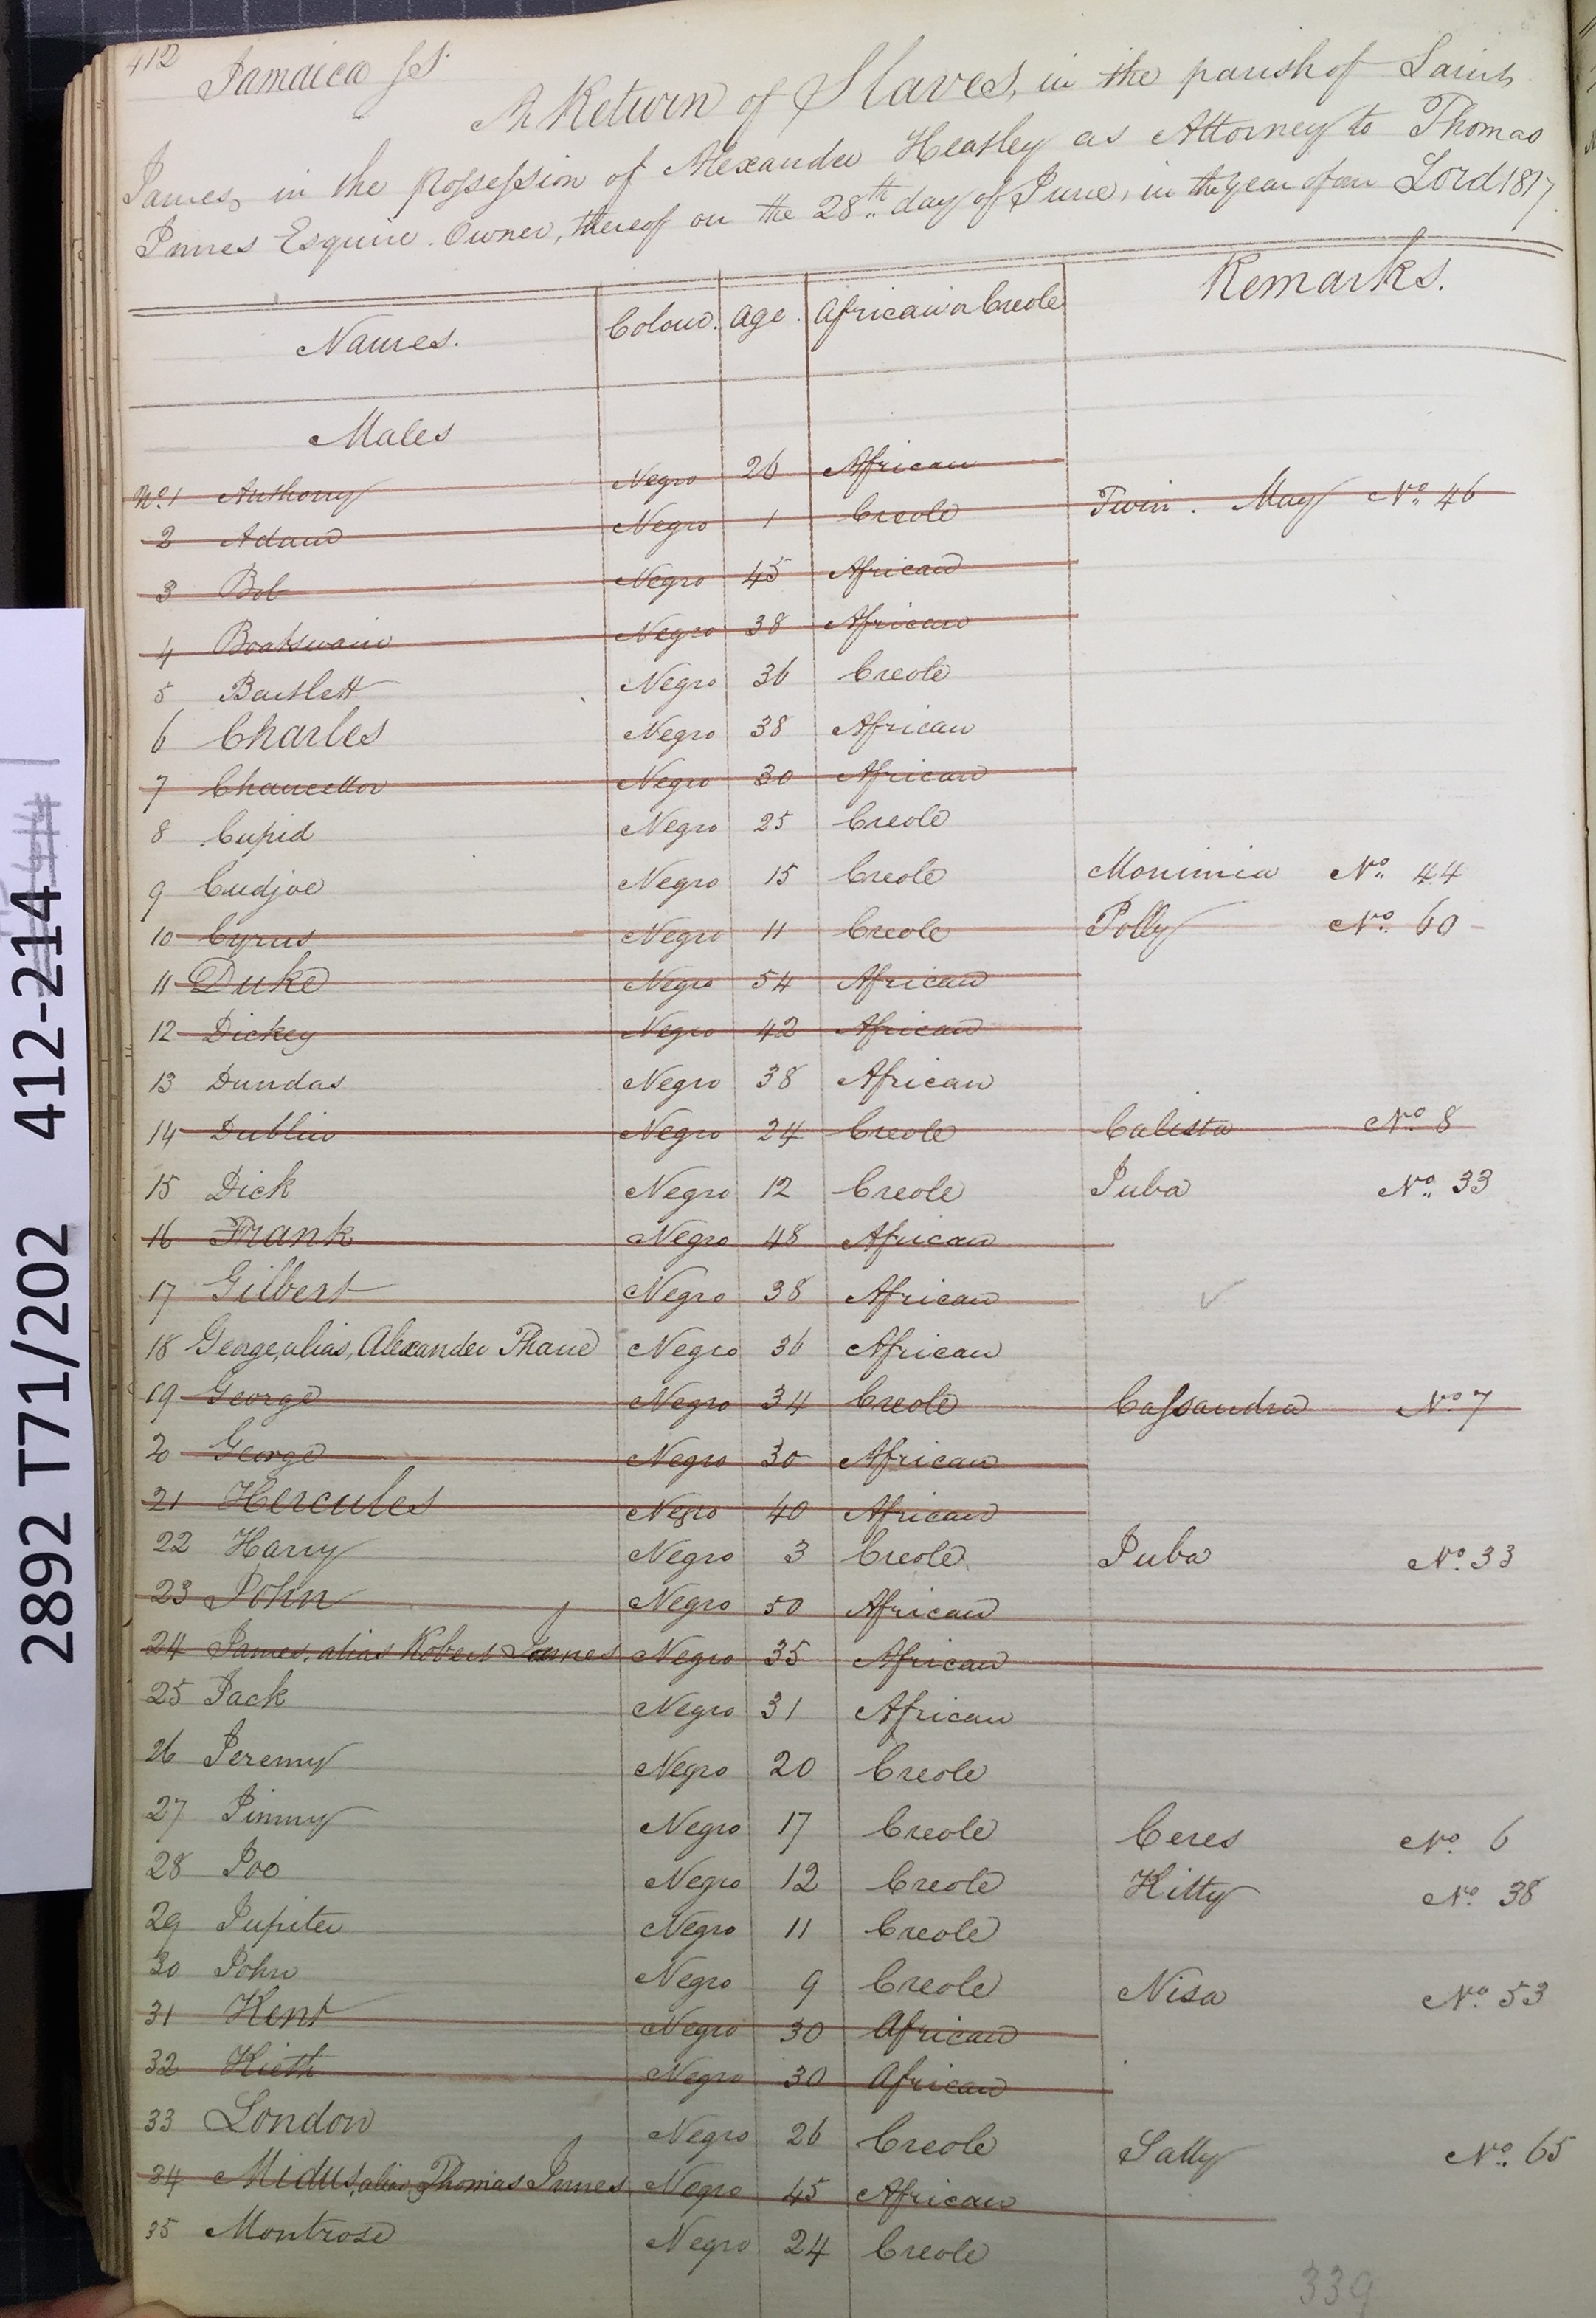 412
Jamaica ss.
A Return of Slaves, in the parish of Saint
James, in the possession of Alexander Heasley as Attorney to Thomas
Innes Esquire. Owner, thereof on the 28th day of June, in the year of our Lord 1817.
Names. Colour. Age. African or Creole Remarks.
Males
No. 1 Anthony Negro 26 African
2 Adam Negro 1 Creole Twin. May No. 46
3 Bob Negro 45 African
4 Boatswain Negro 38 African
5 Bartlett Negro 36 Creole
6 Charles Negro 38 African
7 Chancellor Negro 30 African
8 Cupid Negro 25 Creole
9 Cudjoe Negro 15 Creole Monimia No. 44
10 Cyrus Negro 11 Creole Polly No. 60
11 Duke Negro 54 African
12 Dickey Negro 42 African
13 Dundas Negro 38 African
14 Dublin Negro 24 Creole Calista No. 8
15 Dick Negro 12 Creole Juba No. 33
16 Frank Negro 48 African
17 Gilbert Negro 38 African ✓
18 George, alias, Alexander Thane Negro 36 African
19 George Negro 34 Creole Cassandra No 7
20 George Negro 30 African
21 Hercules Negro 40 African
22 Harry Negro 3 Creole Juba No. 33
23 John Negro 50 African
24 James, alias Robert Innes Negro 35 African
25 Jack Negro 31 African
26 Jeremy Negro 20 Creole
27 Jimmy Negro 17 Creole Ceres No. 6
28 Joe Negro 12 Creole Kitty No. 38
29 Jupiter Negro 11 Creole
30 John Negro 9 Creole Nisa No. 53
31 Kent Negro 30 African
32 Kieth Negro 30 African
33 London Negro 26 Creole Sally No. 65
34 Midus, alias, Thomas Innes Negro 45 African
35 Montrose Negro 24 Creole
339
2892 T71/202 412-214